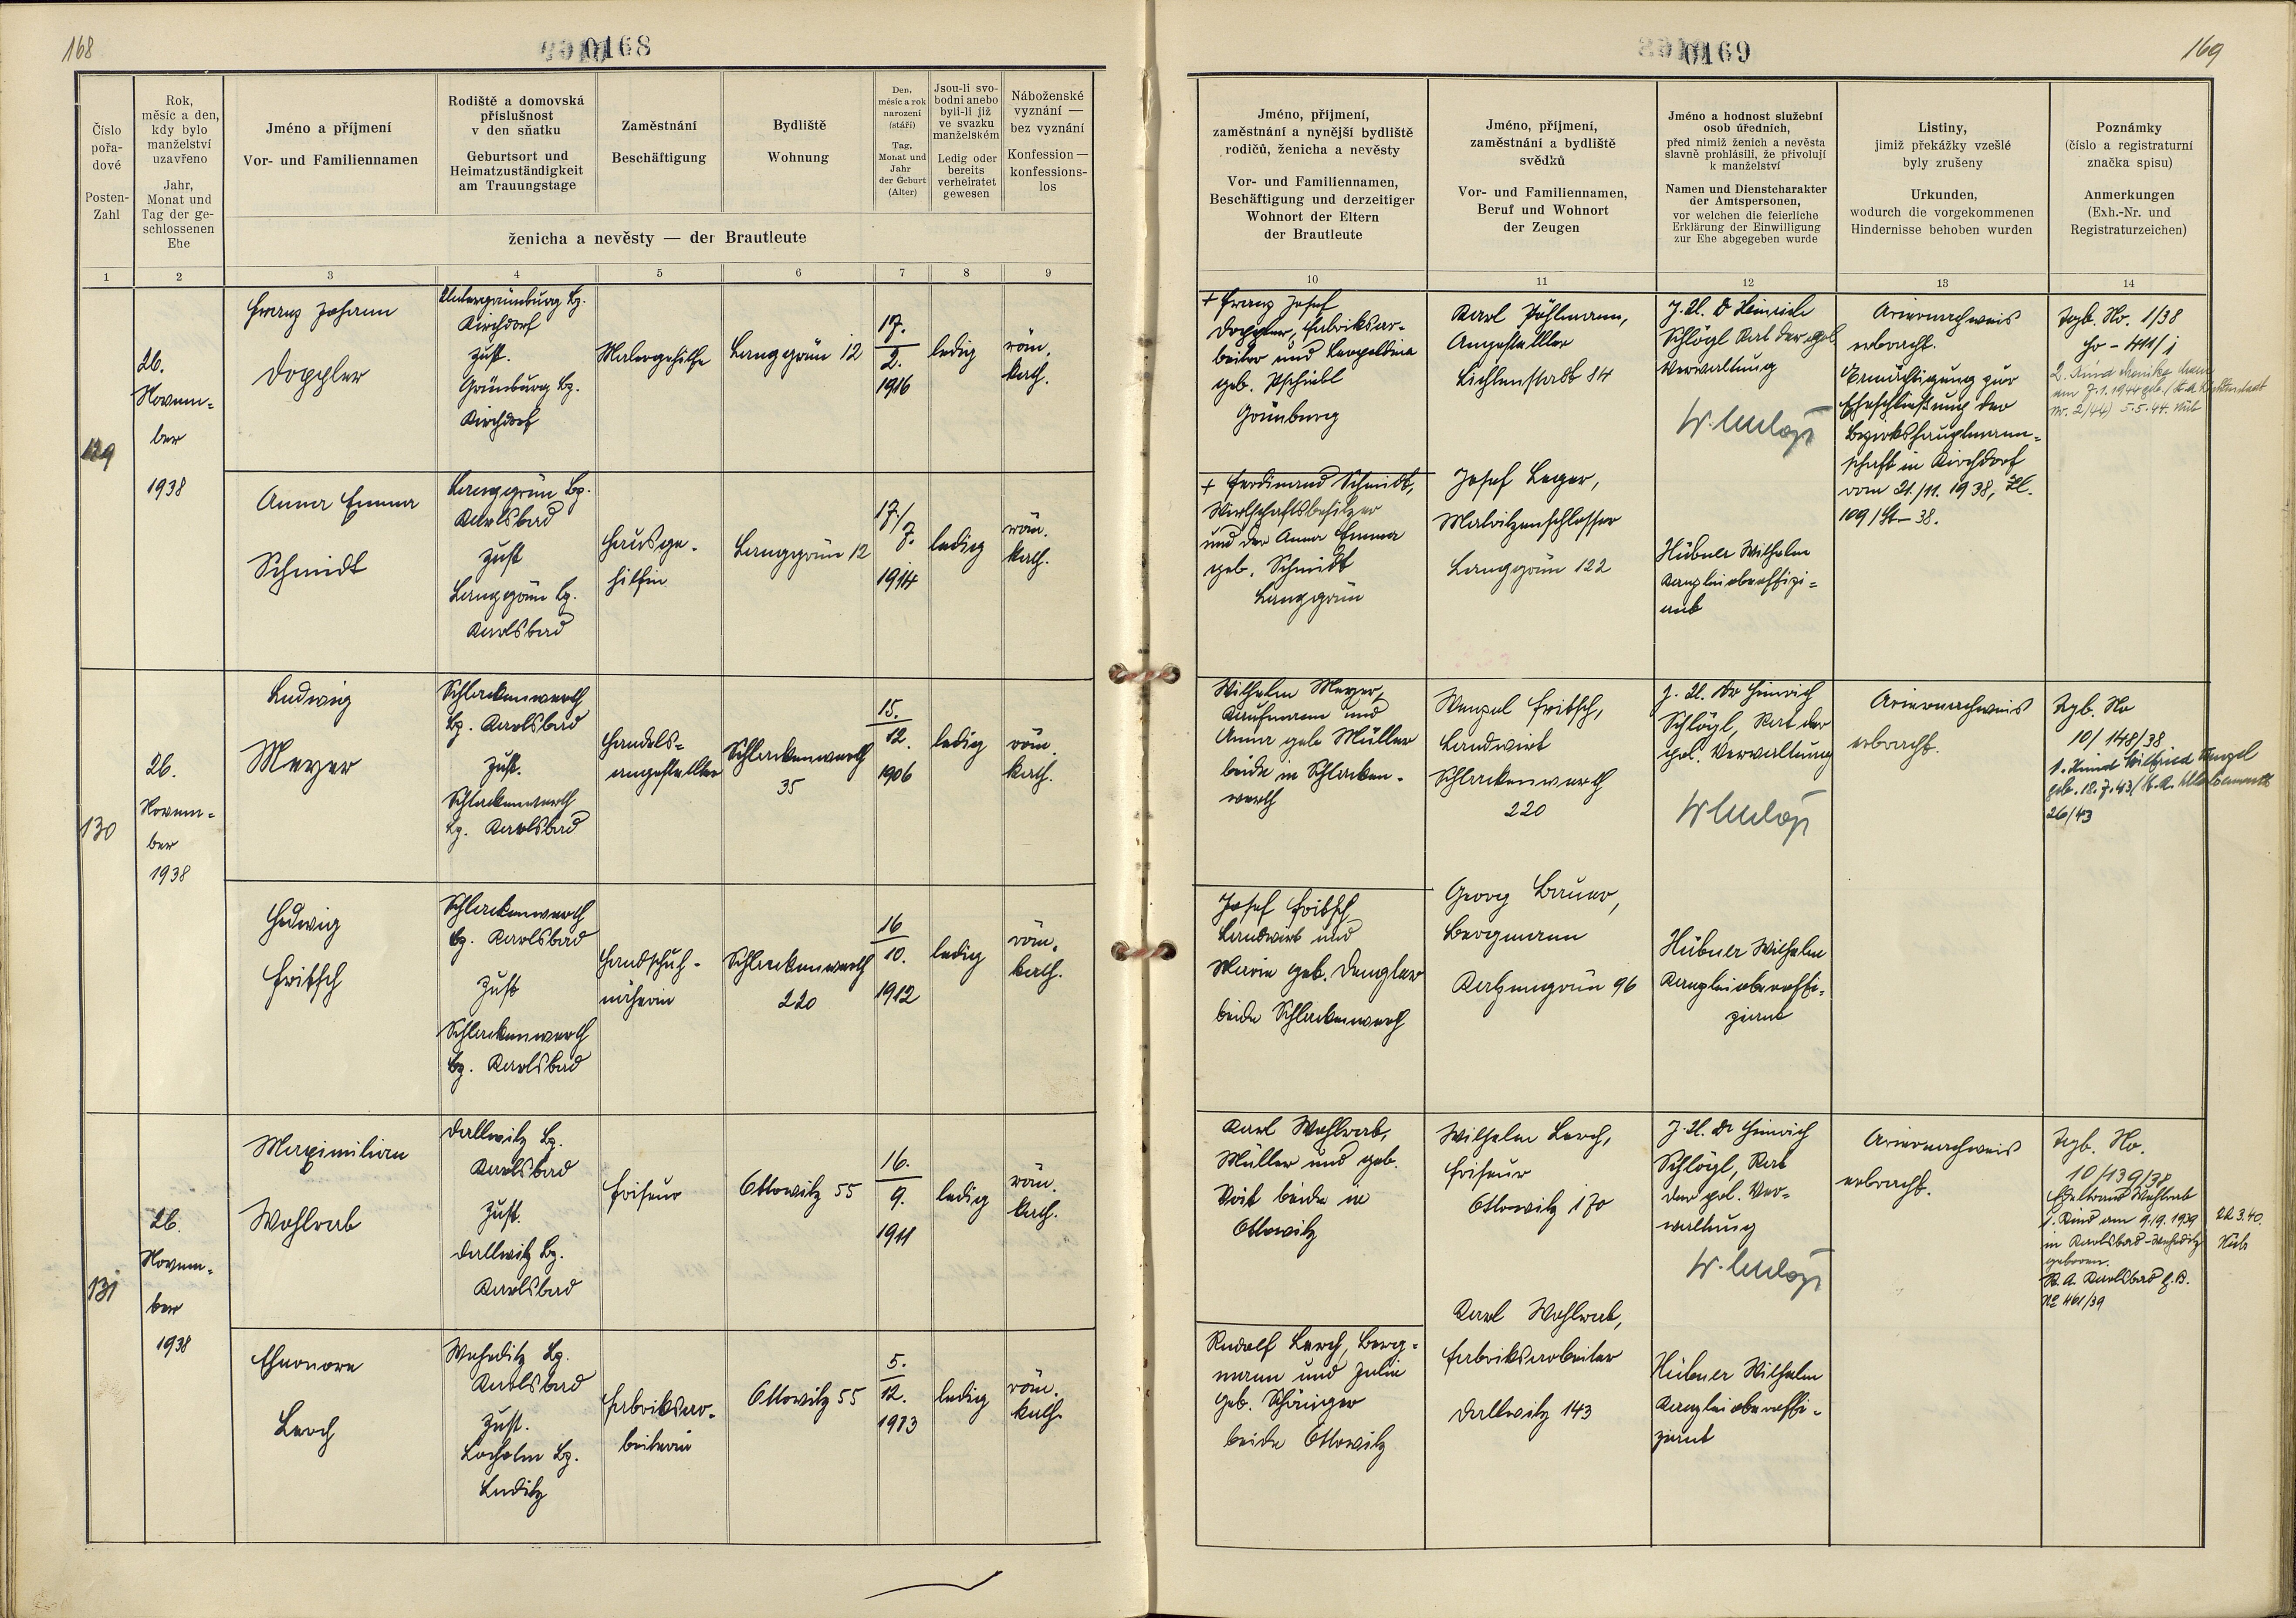 168
0168
Číslo
pořa-
dové
Posten-
Zahl
Rok,
měsíc a den,
kdy bylo
manželství
uzavřeno
Jahr,
Monat und
Tag der ge-
schlossenen
Ehe
Jméno a příjmení
Vor- und Familiennamen
Rodiště a domovská
příslušnost
v den sňatku
Geburtsort und
Heimatzuständigkeit
am Trauungstage
Zaměstnání
Beschäftigung
Bydliště
Wohnung
Den,
měsíc a rok
narození
(stáří)
Tag,
Monat und
Jahr
der Geburt
(Alter)
Jsou-li svo-
bodni anebo
byli-li již
ve svazku
manželském
Ledig oder
bereits
verheiratet
gewesen
Náboženské
vyznání —
bez vyznání
Konfession —
konfessions-
los
ženicha a nevěsty — der Brautleute
1 2 3 4 5 6 7 8 9
129
26.
Novem-
ber
1938
Franz Johann
Doppler
Untergrünburg Bz.
Kirchdorf
zust.
Grünburg Bz.
Kirchdorf
Malergehilfe
Langgrün 12
17.
2.
1916
ledig
röm.
kath.
Anna Emma
Schmidt
Langgrün Bz.
Karlsbad
zust
Langgrün Bz.
Karlsbad
Hausge-
hilfin
Langgrün 12
17./
7.
1914
ledig
röm.
kath.
130
26.
Novem-
ber
1938
Ludwig
Meyer
Schlackenwerth
Bz. Karlsbad
zust.
Schlackenwerth
Bz. Karlsbad
Handels-
angestellter
Schlackenwerth
35
15.
12.
1906
ledig
röm.
kath.
Hedwig
Fritsch
Schlackenwerth
Bz. Karlsbad
zust
Schlackenwerth
Bz. Karlsbad
Handschuh-
näherin
Schlackenwerth
220
16
10.
1912
ledig
röm.
kath.
131
26.
Novem-
ber
1938
Maximilian
Wohlrab
Dallwitz Bz.
Karlsbad
zust.
Dallwitz Bz.
Karlsbad
Friseur
Ottowitz 55
16.
9.
1911
ledig
röm.
kath.
Lerch
Weheditz Bz.
Karlsbad
zust.
Bz.
Luditz
Fabriksar-
beiterin
Ottowitz 55
5.
12.
1913
ledig
röm.
kath.
0169
169
Jméno, příjmení,
zaměstnání a nynější bydliště
rodičů, ženicha a nevěsty
Vor- und Familiennamen,
Beschäftigung und derzeitiger
Wohnort der Eltern
der Brautleute
Jméno, příjmení,
zaměstnání a bydliště
svědků
Vor- und Familiennamen,
Beruf und Wohnort
der Zeugen
Jméno a hodnost služební
osob úředních,
před nimiž ženich a nevěsta
slavně prohlásili, že přivolují
k manželství
Namen und Dienstcharakter
der Amtspersonen,
vor welchen die feierliche
Erklärung der Einwilligung
zur Ehe abgegeben wurde
Listiny,
jimiž překážky vzešlé
byly zrušeny
Urkunden,
wodurch die vorgekommenen
Hindernisse behoben wurden
Poznámky
(číslo a registraturní
značka spisu)
Anmerkungen
(Exh.-Nr. und
Registraturzeichen)
10 11 12 13 14
+ Franz Josef
Doppler, Fabriksar-
beiter und Leopoldina
geb.
Grünburg
Karl Pöhlmann,
Angestellter
Lichtenstadt 84
J. U. Dr Heinrich
Schlögl Rat der pol.
Verwaltung
Ariernachweis
erbracht.
Ermächtigung zur
Eheschließung der
Bezirkshauptmann-
schaft in Kirchdorf
vom 21./11. 1938, Zl.
109/St-38.
Tgb. No. 1/38
2. Kind
am 7.1.1944 geb. (St.A. Lichtenstadt
Nr. 2/44) 5.5.44.
+ Ferdinand Schmidt,
Wirtschaftsbesitzer
und der Anna Emma
geb. Schmidt
Langgrün
Josef Leger,
Matritzenschlosser
Langgrün 122
Hübner Wilhelm
Kanzleioberoffizi-
ant
Wilhelm Meyer,
Kaufmann und
Anna geb Müller
beide in Schlacken-
werth
Wenzel Fritsch,
Landwirt
Schlackenwerth
220
J. U. Dr Heinrich
Schlögl, Rat der
pol. Verwaltung
Ariernachweis
erbracht.
Tgb. No
10/148/38
1. Kind Wilfried Wenzel
geb. 18.7.43
26/43
Josef Fritsch
Landwirt und
Maria geb. Dengler
beide Schlackenwerth
Georg Bauer,
Bergmann
Katzengrün 96
Hübner Wilhelm
Kanzleioberoffi-
ziant
Karl Wohlrab,
Müller und geb.
Voit beide in
Ottowitz
Wilhelm Lerch,
Friseur
Ottowitz 170
J. U. Dr Heinrich
Schlögl, Rat
der pol. Ver-
waltung
Ariernachweis
erbracht.
Tgb. No.
10/139/38
Wohlrab
1. Kind am 9.19.1939
in Karlsbad-Weheditz
geboren.
St. A. Karlsbad G.B.
No 461/39
22.3.40.
Rudolf Lerch, Berg-
mann und Julie
geb.
beide Ottowitz
Karl Wohlrab,
Fabriksarbeiter
Dallwitz 143
Hübner Wilhelm
Kanzleioberoffi-
ziant